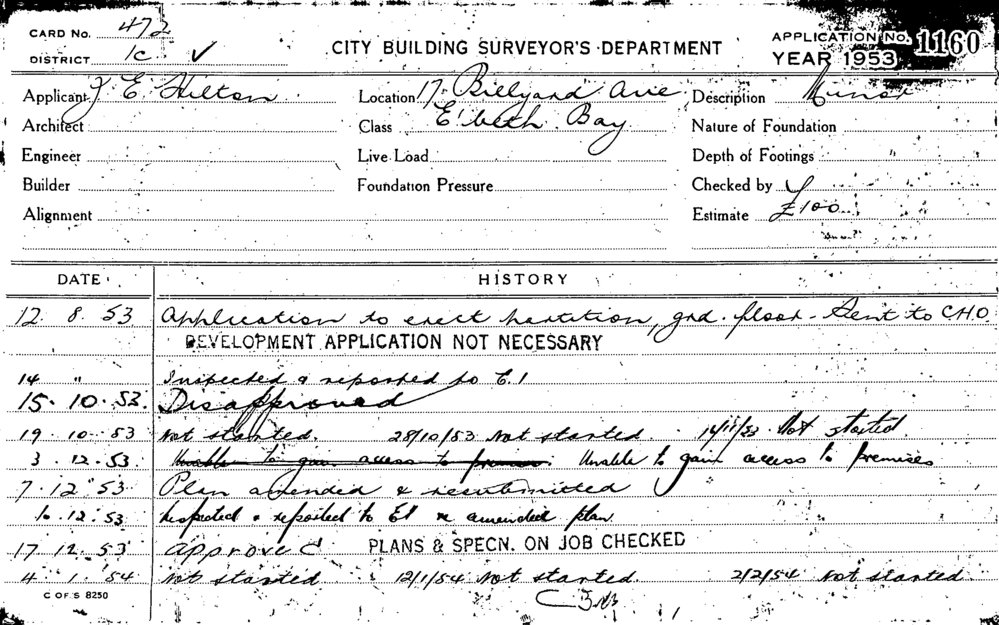 CARD No. 472
DISTRICT 1c ✓
CITY BUILDING SURVEYOR'S DEPARTMENT
APPLICATION No. 1160
YEAR 1953
Applicant J E. Hilton Location 17 Billyard Ave Description Minor
Architect Class E'beth Bay Nature of Foundation
Engineer Live Load Depth of Footings
Builder Foundation Pressure Checked by
Alignment Estimate £100
DATE HISTORY
12. 8. 53 Application to erect partition, grd. floor - Sent to C.H.O.
DEVELOPMENT APPLICATION NOT NECESSARY
14 " Inspected & reported to E.1
15. 10. 53. Disapproved
19. 10. 53 Not started. 28/10/53 Not started. 14/11/53 Not started.
3. 12. 53. Unable to gain access to premises. Unable to gain access to premises
7. 12. 53 Plan amended & resubmitted
12. 53 Inspected & reported to E1 re amended plan.
17 12. 53 Approved PLANS & SPECN. ON JOB CHECKED
4. 1. 54 Not started. 12/1/54 Not started. 2/2/54 Not started.
C OF S 8250